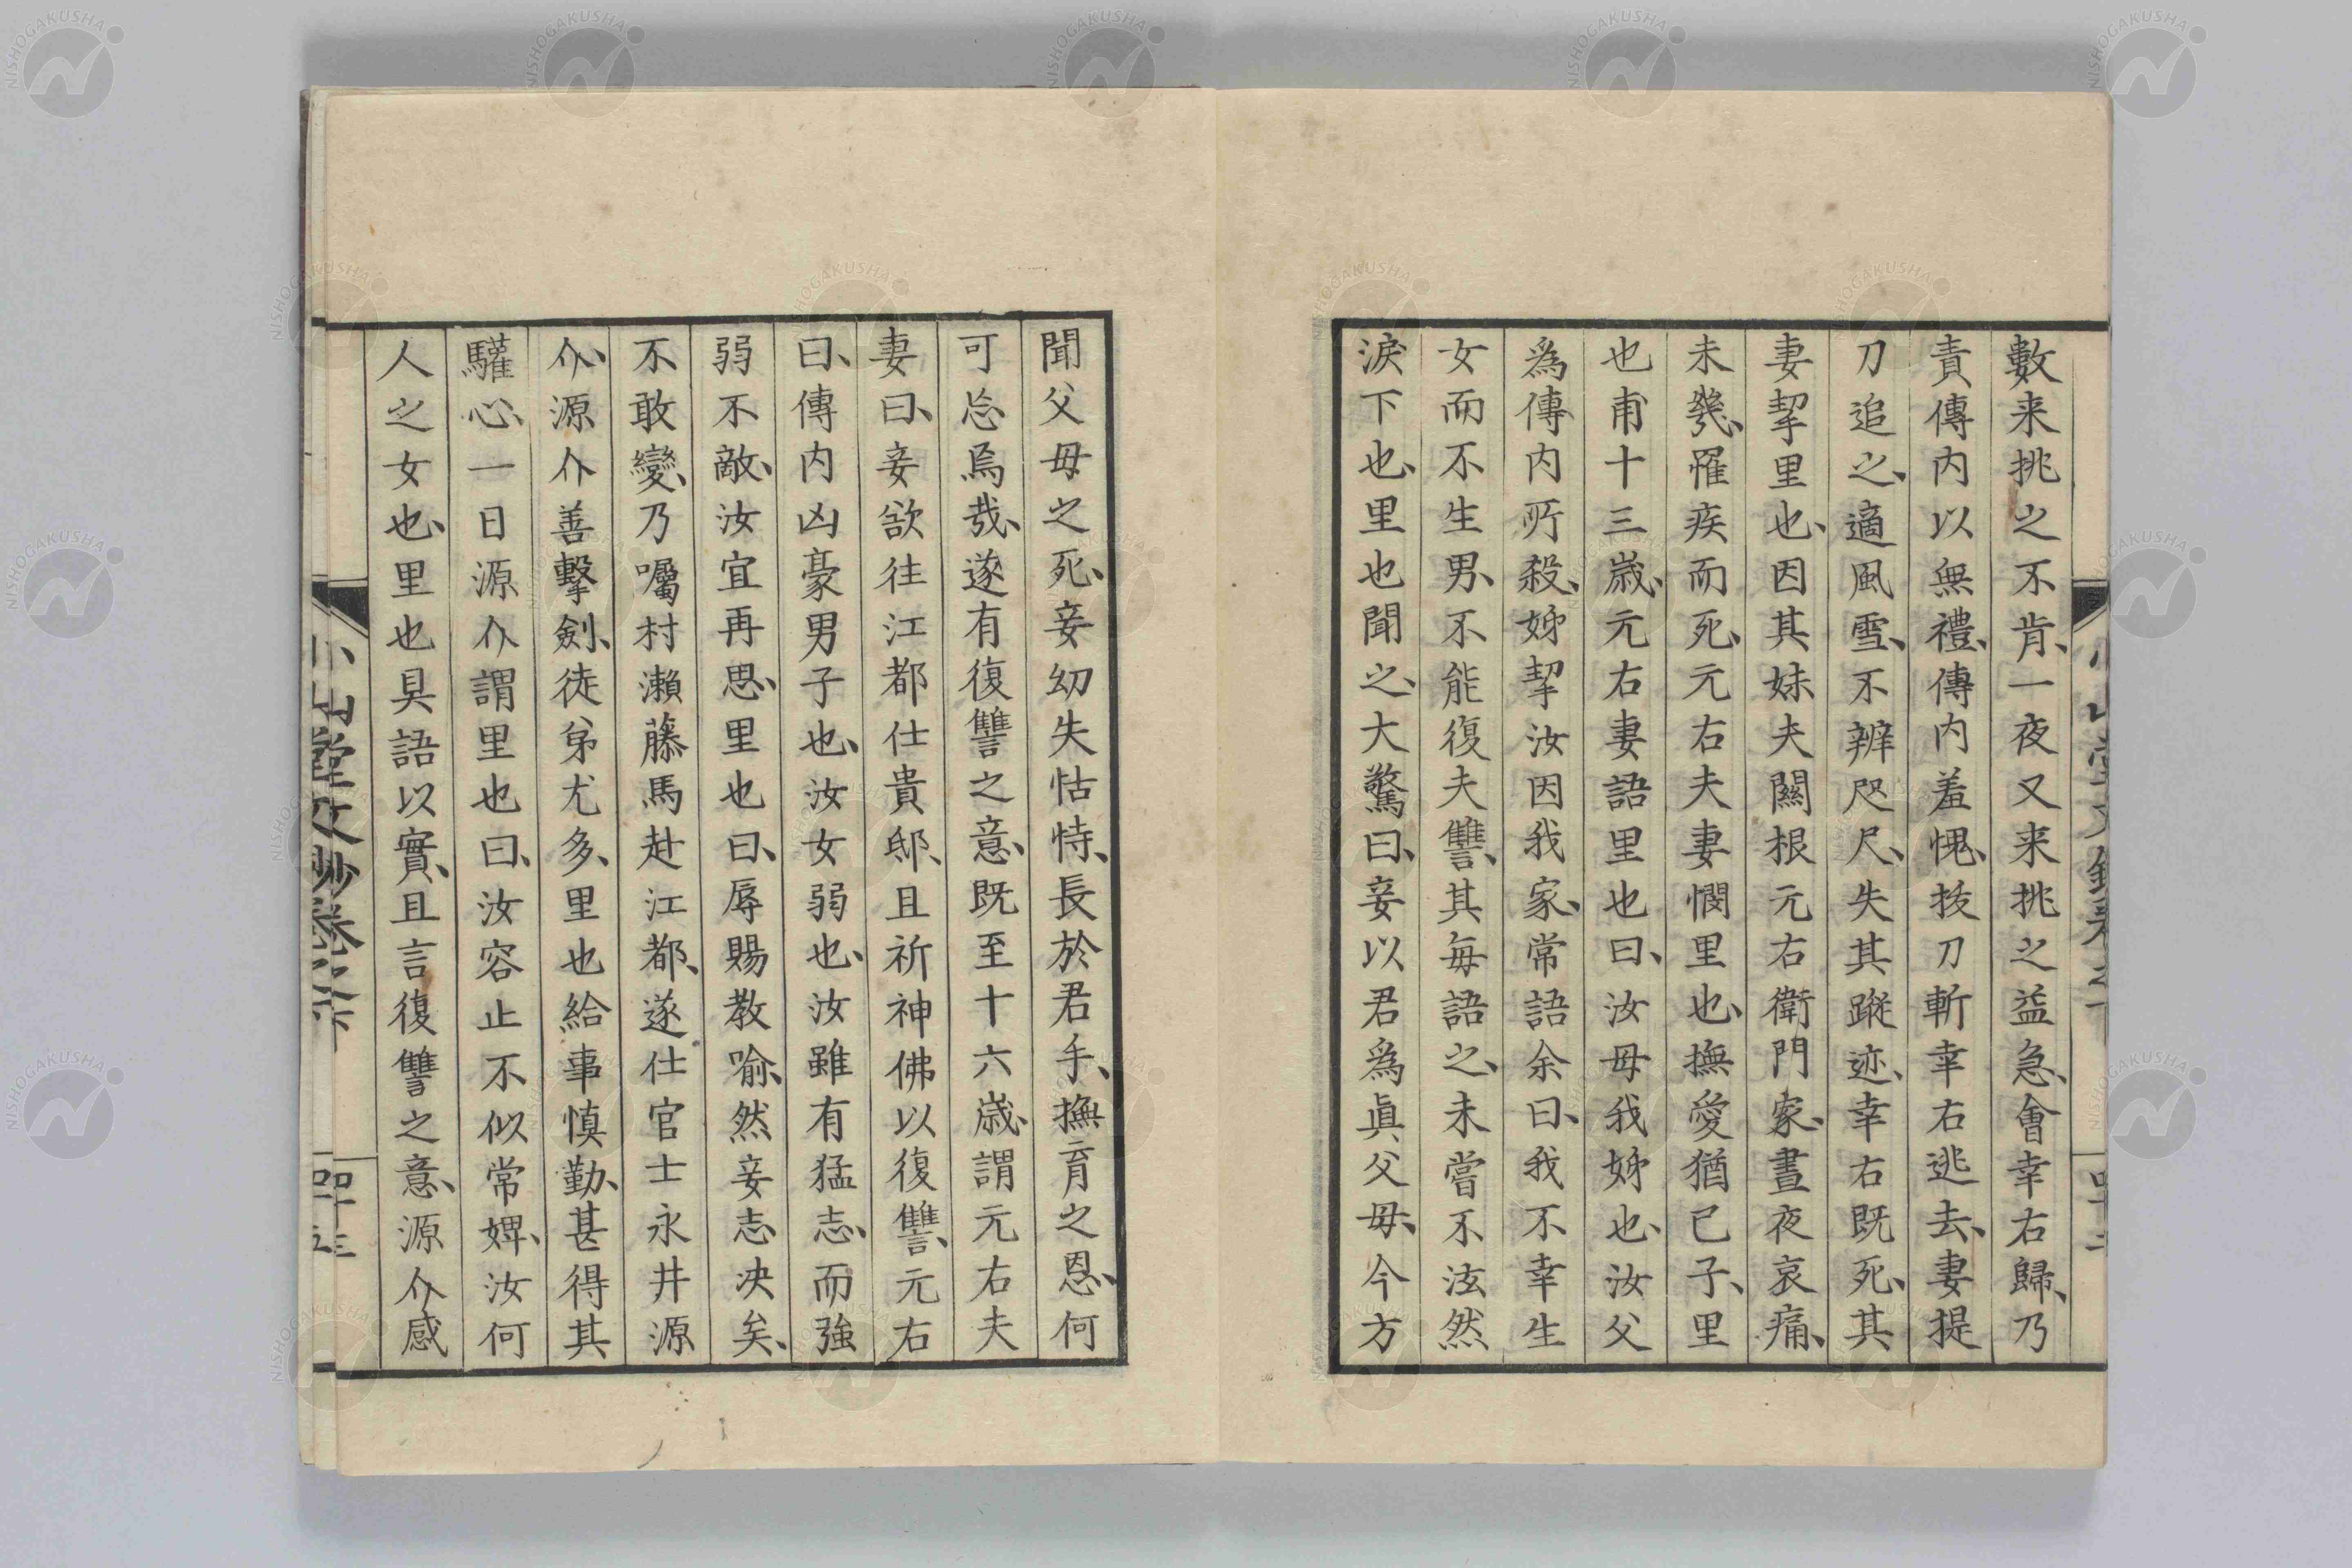 數来挑之不肯、一夜又来挑之益急、會幸右歸、乃
責傳内以無禮、傳内羞愧、拔刀斬幸右逃去、妻提
刀追之、適風雪、不辨咫尺、失其蹤迹、幸右既死、其
妻挈里也、因其妹夫關根元右衛門家、晝夜哀痛、
未幾、罹疾而死、元右夫妻憫里也、撫愛猶己子、里
也甫十三歲、元右妻語里也曰、汝母我姊也、汝父
爲傳内所殺、姊挈汝因我家、常語余曰、我不幸生
女而不生男、不能復夫讐、其每語之、未嘗不泫然
淚下也、里也聞之、大驚曰、妾以君爲眞父母、今方
聞父母之死、妾幼失怙恃、長於君手、撫育之恩、何
可忘焉哉、遂有復讐之意、既至十六歲、謂元右夫
妻曰、妾欲往江都仕貴邸、且祈神佛以復讐、元右
曰、傳内凶豪男子也、汝女弱也、汝雖有猛志、而強
弱不敵、汝宜再思、里也曰、辱賜教喻、然妾志决矣、
不敢變、乃囑村瀨藤馬赴江都、遂仕官士永井源
介、源介善擊劍、徒弟尤多、里也給事慎勤、甚得其
驩心、一日源介謂里也曰、汝容止不似常婢、汝何
人之女也、里也具語以實、且言復讐之意、源介感
小山堂文鈔卷之下